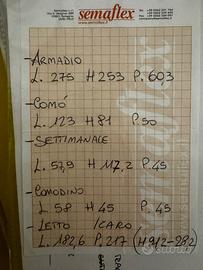 semaflex
- ARMADIO
L. 275 H 253 P. 60,3
- COMÓ
L. 123 H 81 P. 50
- SETTIMANALE
L. 57,9 H 117,2 P. 45
- COMODINO
L 58 H 45 P. 45
- LETTO ICARO
L. 182,6 P. 217 (H 912-282)